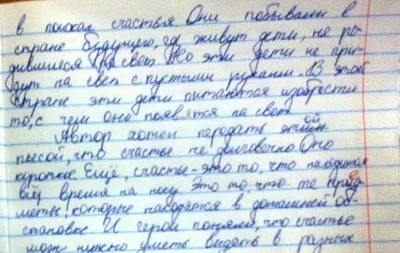 в поисках счастья Они побывали в
стране будущего, где живут дети, не ро-
дившиеся на свет. Но эти дети не при-
дут на свет с пустыми руками. В этой
стране эти дети пытаются изобрести
то, с чем они появятся на свет.
Автор хотел передать этой
пьесой, что счастье не долговечно. Оно
короткое Ещё, счастье - это то, что находится
всё время на носу это то, что те пред-
меты, которые находятся в домашней об-
становке И герои поняли, что счастье
мож нужно уметь видеть в разных